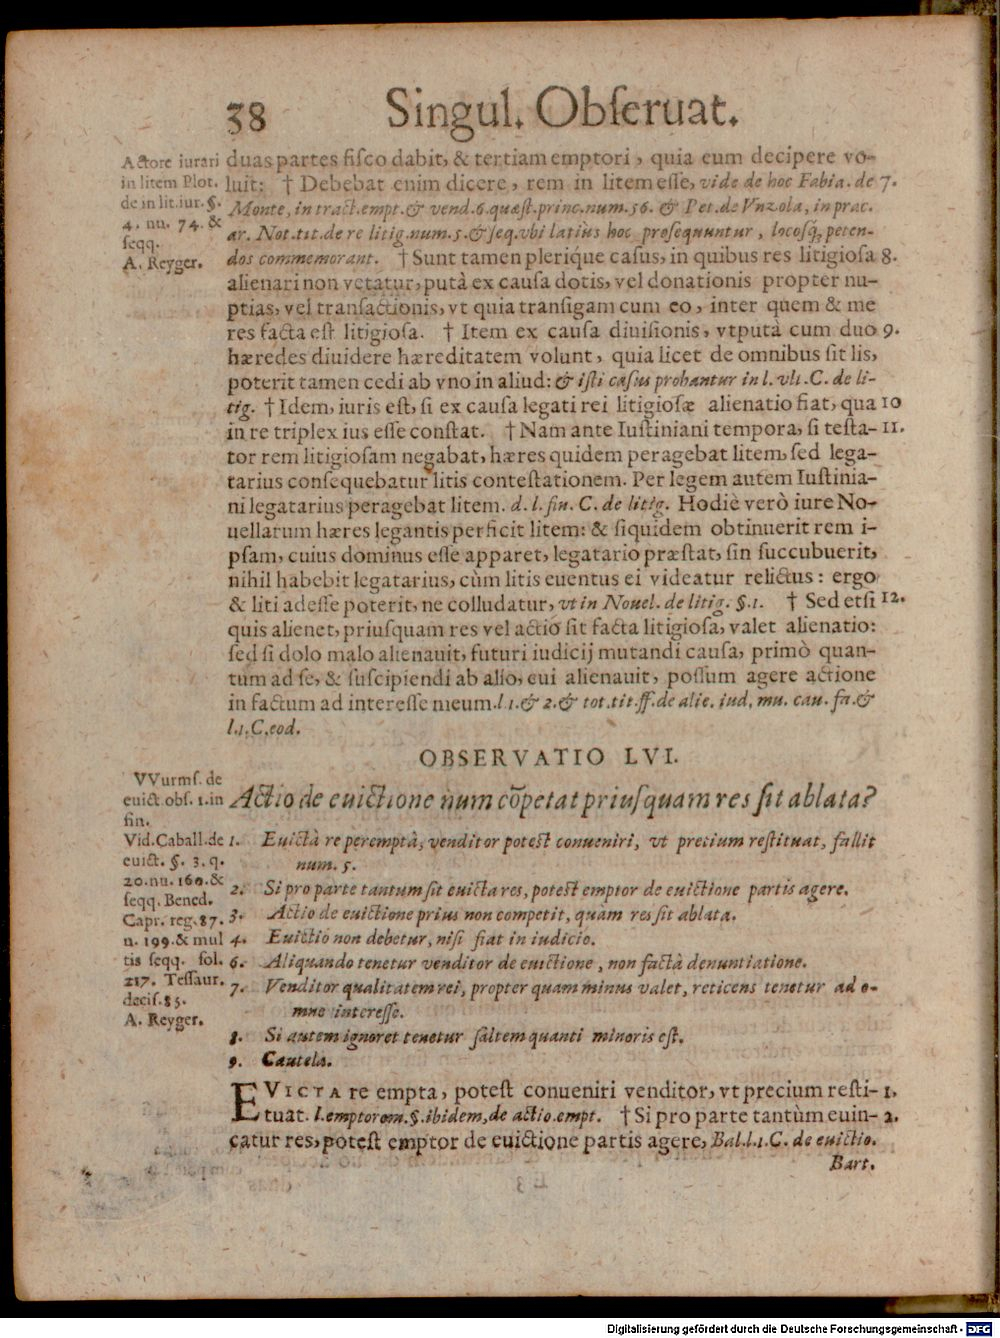 38 Singul. Obſeruat.
Actore iurari
in litem Plot.
de in lit. iur. §.
4. nu. 74. &
ſeqq.
A. Reyger.
duas partes fiſco dabit, & tertiam emptori, quia eum decipere vo-
luit: † Debebat enim dicere, rem in litem eſſe, vide de hoc Fabia. de 7.
Monte, in tract. empt. & vend. 6. quæſt. princ. num. 56. & Pet. de Vnzola, in prac.
ar. Not. tit. de re litig. num. 5. & ſeq. vbi latius hoc proſequuntur, locoſq́; peten-
dos commemorant. † Sunt tamen pleriq́ue caſus, in quibus res litigioſa 8.
alienari non vetatur, putà ex cauſa dotis, vel donationis propter nu-
ptias, vel tranſactionis, vt quia tranſigam cum eo, inter quem & me
res facta eſt litigioſa. † Item ex cauſa diuiſionis, vtputà cum duo 9.
hæredes diuidere hæreditatem volunt, quia licet de omnibus ſit lis,
poterit tamen cedi ab vno in aliud: & iſti caſus probantur in l. vlt. C. de li-
tig. † Idem, iuris eſt, ſi ex cauſa legati rei litigioſæ alienatio fiat, qua 10
in re triplex ius eſſe conſtat. † Nam ante Iuſtiniani tempora, ſi teſta- 11.
tor rem litigioſam negabat, hæres quidem peragebat litem, ſed lega-
tarius conſequebatur litis conteſtationem. Per legem autem Iuſtinia-
ni legatarius peragebat litem. d. l. fin. C. de litig. Hodiè verò iure No-
uellarum hæres legantis perficit litem: & ſiquidem obtinuerit rem i-
pſam, cuius dominus eſſe apparet, legatario præſtat, ſin ſuccubuerit,
nihil habebit legatarius, cùm litis euentus ei videatur relictus: ergo
& liti adeſſe poterit, ne colludatur, vt in Nouel. de litig. §. 1. † Sed etſi 12.
quis alienet, priuſquam res vel actio ſit facta litigioſa, valet alienatio:
ſed ſi dolo malo alienauit, futuri iudicij mutandi cauſa, primò quan-
tum ad ſe, & ſuſcipiendi ab alio, cui alienauit, poſſum agere actione
in factum ad intereſſe meum. l 1. & 2. & tot. tit. ff. de alie. iud. mu. cau. fa. &
l. 1. C. eod.
OBSERVATIO LVI.
VVurmſ. de
euict obſ. 1. in
fin.
Vid. Caball. de
euict. §. 3. q.
20. nu. 160. &
ſeqq. Bened.
Capr. reg. 87.
n. 199. & mul
tis ſeqq. fol.
217. Teſſaur.
deciſ. 85.
A. Reyger.
Actio de euictione num cõpetat priuſquam res ſit ablata?
1. Euictà re peremptà, venditor poteſt conueniri, vt precium reſtituat, fallit
num. 5.
2. Si pro parte tantum ſit euicta res, poteſt emptor de euictione partis agere.
3. Actio de euictione prius non competit, quàm res ſit ablata.
4. Euictio non debetur, niſi fiat in iudicio.
6. Aliquando tenetur venditor de euictione, non factà denuntiatione.
7. Venditor qualitatem rei, propter quam minus valet, reticens tenetur ad o-
mne intereſſe.
8. Si autem ignoret tenetur ſaltem quanti minoris eſt.
9. Cautela.
EVICTA re empta, poteſt conueniri venditor, vt precium reſti- 1.
tuat. l. emptorem. §. ibidem, de actio. empt. † Si pro parte tantùm euin- 2.
catur res, poteſt emptor de euictione partis agere, Bal. l. 1. C. de euictio.
Bart.
Digitalisierung gefördert durch die Deutsche Forschungsgemeinschaft - DFG